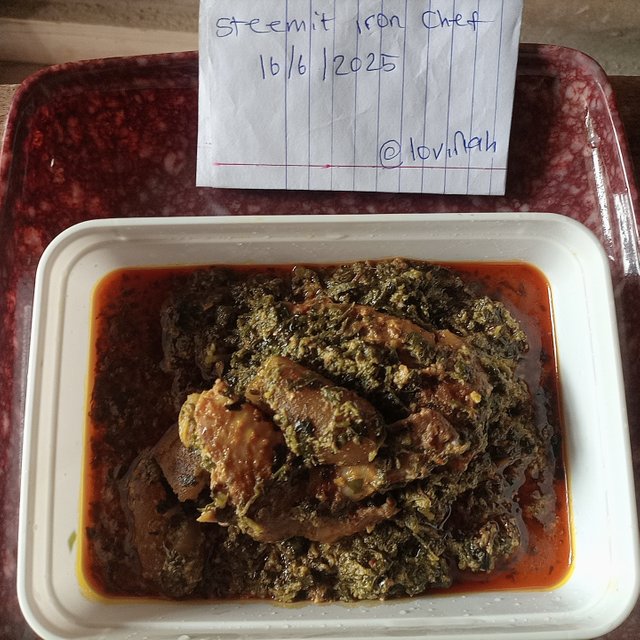 Steemit iron Chef
16/6/2025
@lovinah